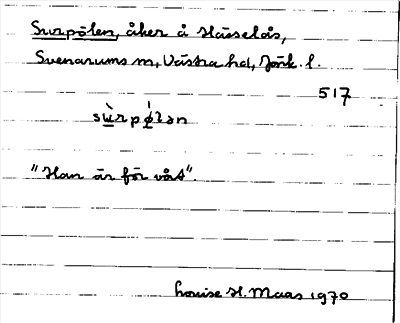 Surpölen, åker å Hässelås,
Svenarums sn, Västra hd, Jönk. l.
517
sùrpǿlən
"Han är för våt".
Louise H. Maas 1970